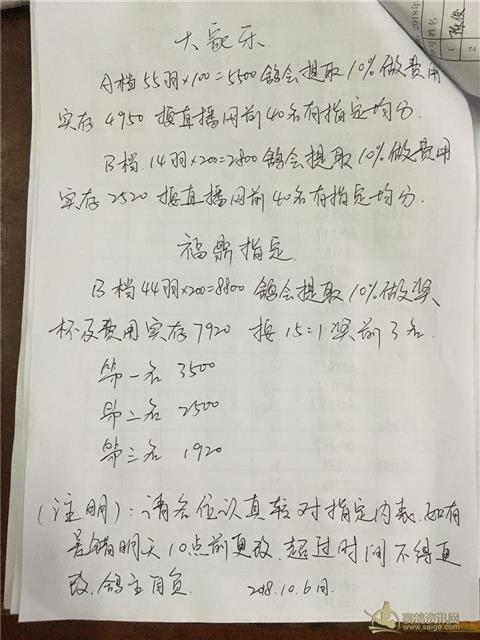 2018年
号姓名
1
2
大家乐
A档55羽×100=5500鸽会提取10%做费用
实存4950按直播网前40名有指定均分.
B档.14羽×200=2800鸽会提取10%做费用
实存2520按直播网前40名有指定均分.
福鼎指定
B档44羽×200=8800 鸽会提取10%做奖
杯及费用实存7920 按15:1奖前3名.
第一名 3500
第二名 2500
第三名 1920
(注明):请各位认真较对指定内表.如有
差错明天10点前更改.超过时间不得更
改.鸽主自负. 2018.10.6日.
赛鸽资讯网
www.saige.com